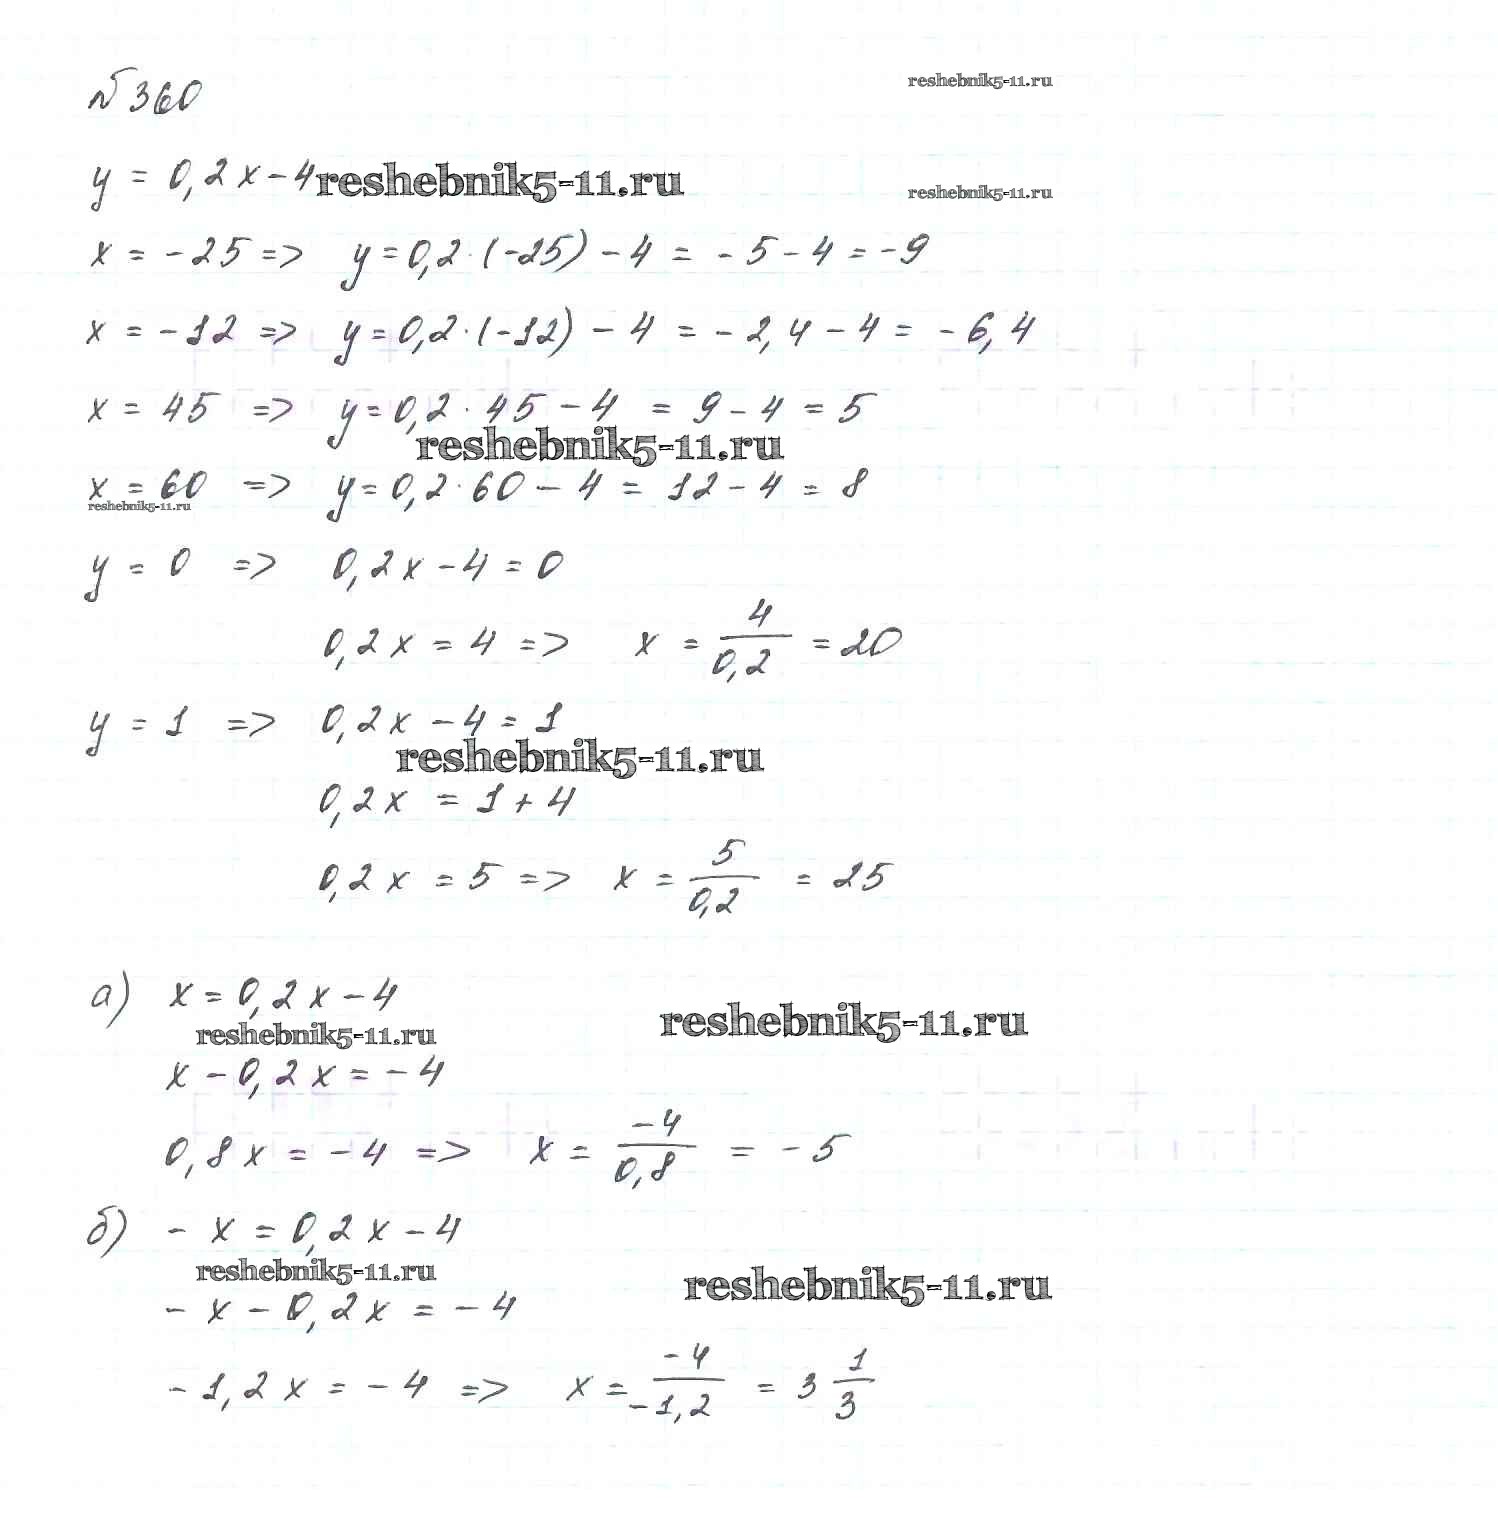 №360
reshebnik5-11.ru
y = 0,2x - 4
reshebnik5-11.ru
reshebnik5-11.ru
x = -25 => y = 0,2 · (-25) - 4 = -5 - 4 = -9
x = -12 => y = 0,2 · (-12) - 4 = -2,4 - 4 = -6,4
x = 45 => y = 0,2 · 45 - 4 = 9 - 4 = 5
reshebnik5-11.ru
x = 60 => y = 0,2 · 60 - 4 = 12 - 4 = 8
reshebnik5-11.ru
y = 0 => 0,2x - 4 = 0
0,2x = 4 => x = 4/0,2 = 20
y = 1 => 0,2x - 4 = 1
reshebnik5-11.ru
0,2x = 1 + 4
0,2x = 5 => x = 5/0,2 = 25
а) x = 0,2x - 4
reshebnik5-11.ru
reshebnik5-11.ru
x - 0,2x = -4
0,8x = -4 => x = -4/0,8 = -5
б) -x = 0,2x - 4
reshebnik5-11.ru
reshebnik5-11.ru
-x - 0,2x = -4
-1,2x = -4 => x = -4/-1,2 = 3 1/3